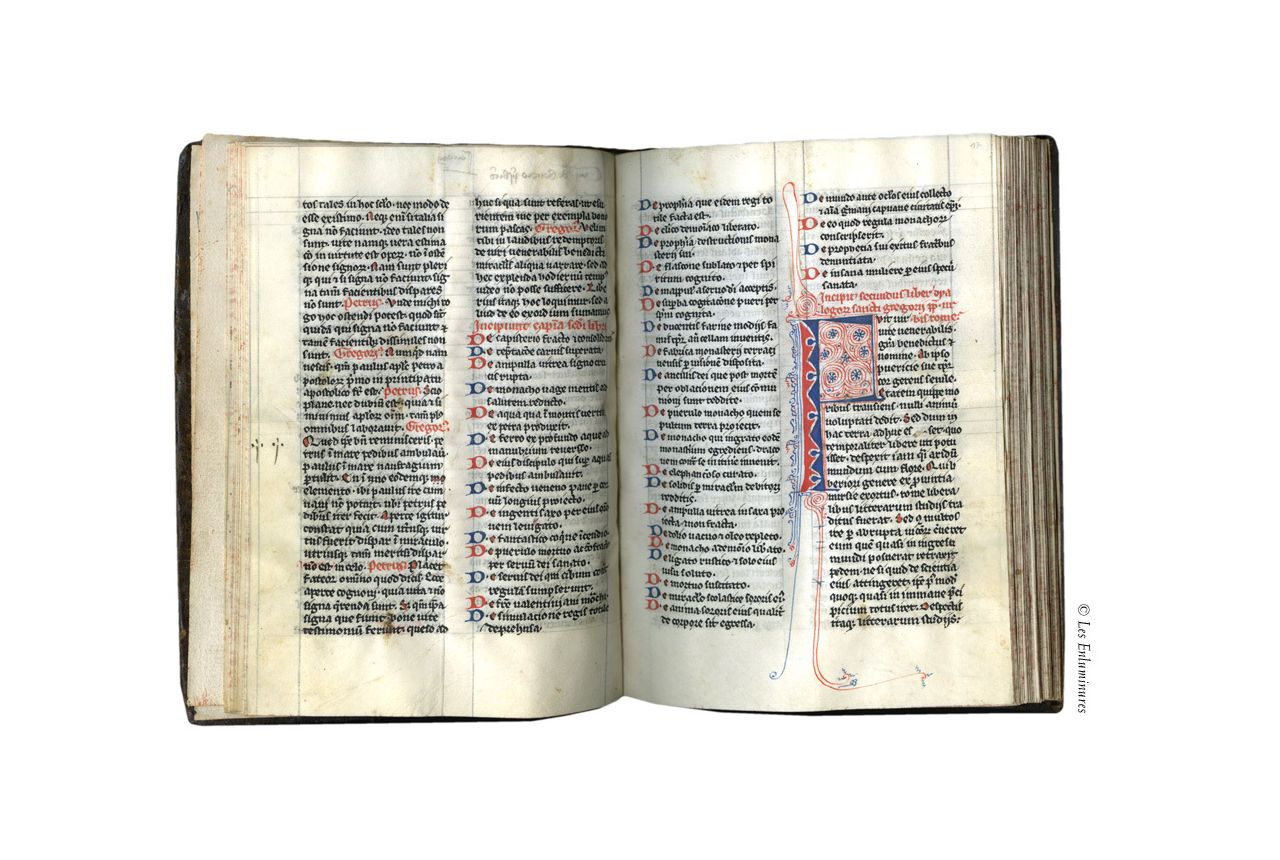 tos tales in hoc sclo. nec modo de
esse existimo. Neq; eni si talia si
gna nō faciunt. ideo tales non
sunt. vite namq; uera estima
cō in uirtute est operꝝ. nō ī osten
sione signorꝝ. Nam sunt pleri
q; qui ⁊ si signa nō faciunt. sig
na tam̄ facientibus dispares
nō sunt. Petrus. Vnde michi ro
go hoc ostendi potest. quod sint
quidā qui signa nō faciunt ⁊
tam̄ facientibus dissimiles non
sunt. Gregoriꝰ. Numquid nam
nescis. qm̄ paulus apl̄s petro a
postolorꝝ p̄mo in principatu
apostolico fr̄ est. Petrus. Scio
plane. nec dubiū est. quia etsi
minimus aplorꝝ om̄. tam̄ plꝰ
omnibus laborauit. Gregoriꝰ.
Quod q̄ bn̄ reminisceris. pe
trus ī mare pedibus ambulau.
paulus ī mare naufragium
pertulit. En ī uno eodemq;
elemento. ibi paulus ire cum
naui nō potuit. ubi petrus pe
dibus iter fecit. Aperte igitur
constat quia cum utriusq; uir
tus fuerit dispar ī miraculo.
utriusq; tam̄ meritū dispar
nō est in celo. Petrus. Placet
fateor omīno quod dicis. Ecce
aperte cognoui. quia uita ⁊ nō
signa q̄renda sunt. Sed qm̄ ipsa
signa que fiunt bone uite
testimoniū ferunt. queso ad
huc si qua sunt referas. ut esu
rientem me per exempla bono
rum pascas. Gregoriꝰ. Velim
tibi in laudibus redemptoris
de uiri uenerabilis benedicti
miraclis aliqua narrare. sed ad
hec explenda hodiernū temp
uideo nō posse sufficere. Libe
rius itaq; hoc loqui murꝰ. si a
liud de eo exordium sumamus.
Incipiunt capl̄a scd̄i libri
De capisterio fracto ⁊ consolidato
De temptacōe carnis superata.
De ampulla uitrea signo cru
cis rupta.
De monacho uage mentis ad
salutem reducto.
De aqua qua ī montis uertice
ex petra produxit.
De ferro ex profundo aque ad
manubrium reuerso.
De eius discipulo qui super aquas
pedibus ambulauit.
De infecto ueneno pane per cor
uū longius proiecto.
De ingenti saxo per eius oro
nem leuigato.
De fantastico coq̄ne īcendio.
De puerulo mortuo
per seruū dei sanato.
De seruis dei qui cibum contra
regulā sumpserunt.
De fr̄e ualentiniani monachi.
De simulacione regis totile
deprehensa.
17
De prophia que eidem regi to
tile facta est.
De clico demoniaco liberato.
De prophia destructionis mona
sterij sui.
De flascone sublato ⁊ per spi
ritum cognito.
De mappul' a seruo dei acceptis.
De supba cogitacōne pueri per
spm̄ cognita.
De ducentis farine modijs fa
mis tp̄r. an̄ cellam inuentis.
De fabrica monasterij terraci
nensis p uisionē disposita.
De ancillis dei que post mortē
per oblationem eius cōmu
nioni sunt reddite.
De puerulo monacho quem se
pultum terra proiecit.
De monacho qui ingrato eodē
monastium egrediens. draco
nem contra se in itinere inuenit.
De elephancioso curato.
De solidis p miraclm debitori
redditis.
De ampulla uitrea in saxa pro
iecta ⁊ non fracta.
De dolio uacuo ⁊ oleo repleto.
De monacho a demonio libato.
De ligato rustico ⁊ solo eius
uisu soluto.
De mortuo suscitato.
De miraclo scolastice sororis ei9.
De anima sororis eius qualiter
de corpore sit egressa.
De mundo ante oclos eius collecto
⁊ aīa gmani capuane ciuitatis epi.
De eo quod regula monachorꝝ
conscripserit.
De prophetia sui exitus fratribus
denuntiata.
De insana muliere p eius specū
sanata.
Incipit secundus liber dya
logorꝝ sancti gregorij pp. ur
bis rome.
Fuit uir
uite uenerabilis.
gra benedictus ⁊
nomine. Ab ipso
puericie sue tpr.
cor gerens senile.
Etatem quippe mo
ribus transiens. nulli animū
uoluptati dedit. Sed dum in
hac terra adhuc esset. quo
temporaliter libere uti potu
isset. despexit iam q̄si aridū
mundum cum flore. Qui li
beriori genere ex puintia
nursie exortus. rome libera
libus litterarum studijs tra
ditus fuerat. Sed cum multos
ire p abrupta uitiorꝝ cerneret
eum que quasi in ingressu
mundi posuerat retraxit
pedem. ne si quid de scientia
eius attingeret. ip̄e p mod
quoq; quasi in immane p̄ci
picium totus iret. Despectis
itaq; litterarum studijs.
© Les Enluminures